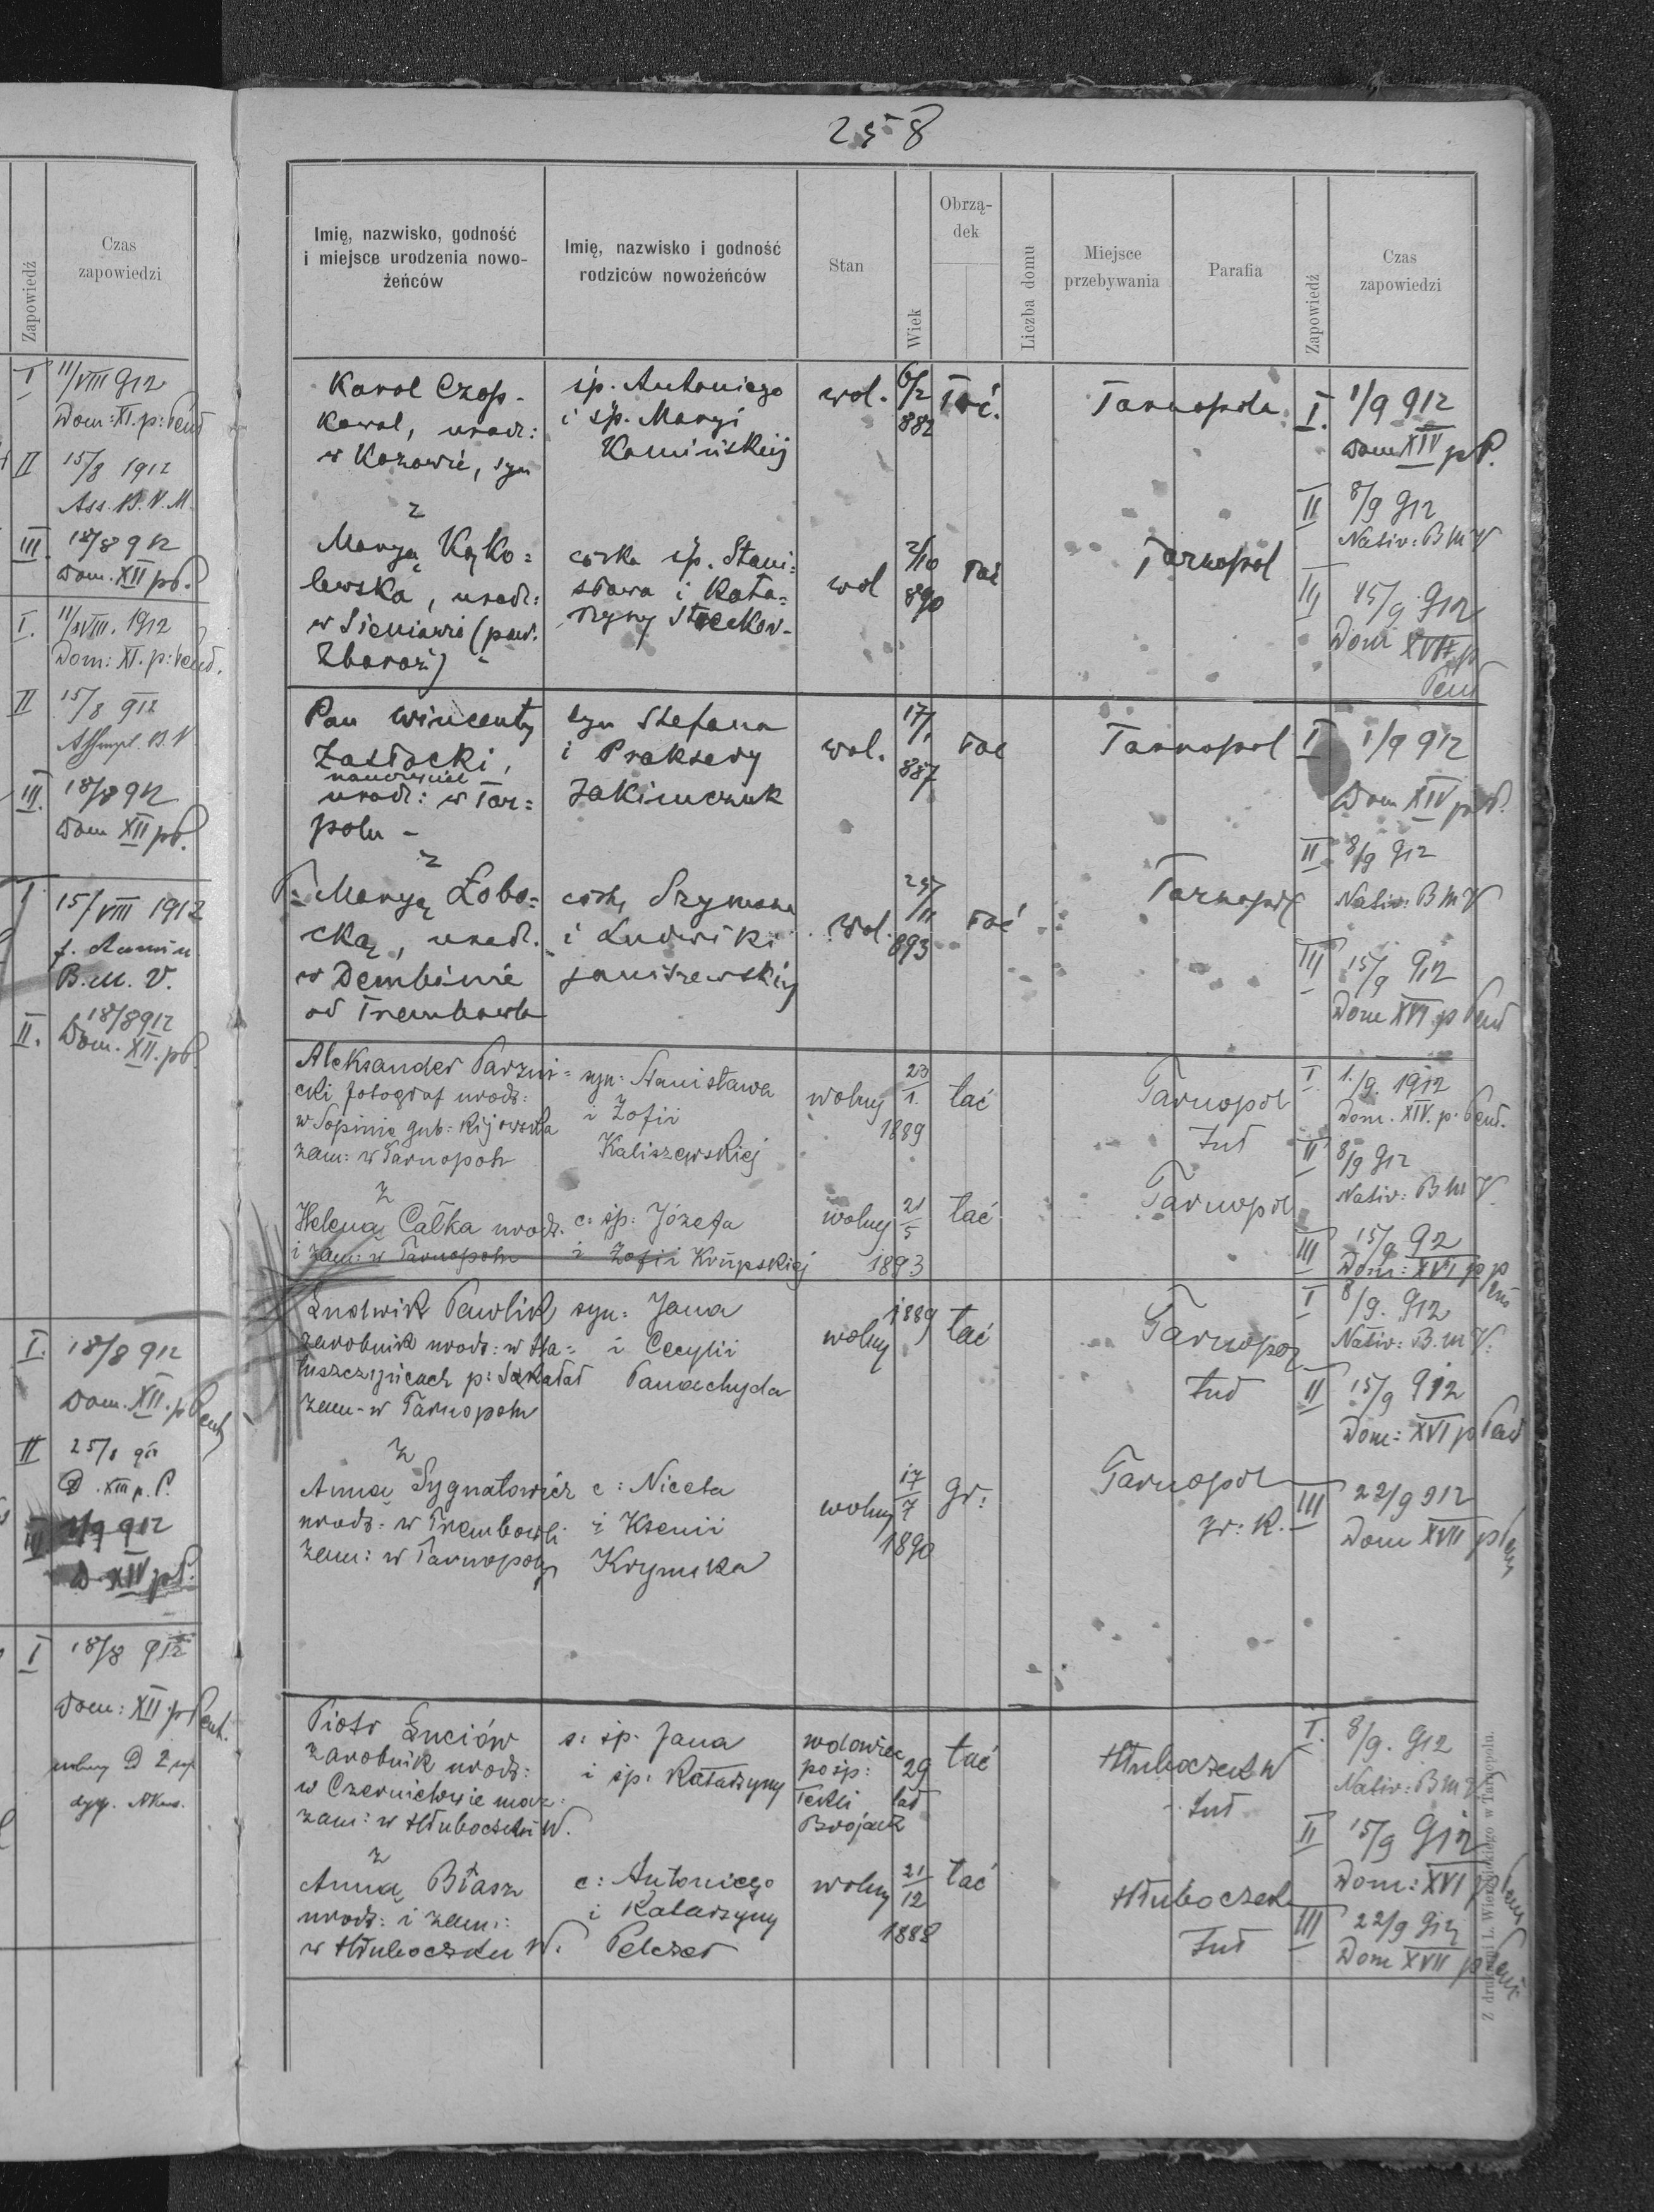 Zapowiedź
Czas
zapowiedzi
I 11/VIII 912
Dom: XI. p: Pent
II 15/8 1912
Ass. B. V. M.
III. 18/8 912
Dom. XII p P.
I. 11/VIII. 1912
Dom: XI. p: Pent.
II 15/8 912
Assmpt. B. V
III. 18/8 912
Dom XII p P.
I 15/VIII 1912
B. M. V.
II. 18/8 912
Dom. XII. p P.
I. 18/8 912
Dom. XII. p Pent
II 25/8 912
D. XIII p. P.
III 1/9 912
D. XIV p P.
I 18/8 912
Dom: XII p Pent.
258
Imię, nazwisko, godność
i miejsce urodzenia nowo-
żeńców
Imię, nazwisko i godność
rodziców nowożeńców
Stan
Wiek
Obrzą-
dek
Liczba domu
Miejsce
przebywania
Parafia
Zapowiedź
Czas
zapowiedzi
Karol Czop-
kowal, urodz:
w Kozowie, syn
śp. Antoniego
i śp. Maryi
Kamińskiej
wol.
6/2
882
łać.
Tarnopolu
I. 1/9 912
Dom XIV p P.
II 8/9 912
Nativ: B M V
III 15/9 912
Dom XVI p
Pent
z
Maryą Kąko=
lewska, urodz:
w Sieniawie (pow.
Zbaraż)
córka śp. Stani=
sława i Kata=
rzyny
wol
2/10
890
łać
Tarnopol
Pan Wincenty
Zastocki,
urodz: w Tar=
polu -
syn Stefana
i Praksedy
Jakimczuk
wol.
17/1
887
łac
Tarnopol
I 1/9 912
Dom XIV p P.
II 8/9 912
Nativ: B M V
III 15/9 912
Dom XVI p Pent
z
P. Maryą Łobo=
cką, urodz.
w Dembinie
od Trembowla
córką Szymona
i Ludwiki
Janiszewskiej
wol.
25/11
893
łać
Tarnopol
Aleksander Parzni=
cki fotograf urodz:
w Sopinie gub: Kijowska
zam: w Tarnopolu
syn: Stanisława
i Zofii
Kaliszewskiej
wolny
23
1.
1889
łać
Tarnopol
tut
I. 1./9. 1912
Dom. XIV. p. Pent.
II 8/9 912
Nativ: B M V
III 15/9 912
Dom: XVI p P
z
Heleną Całka urodz.
i zam: w Tarnopolu
c: śp: Józefa
i Zofii Krupskiej
wolny
21
5
1893
łać
Tarnopol
Ludwik Pawlik
zarobnik urodz: w Ha=
łuszczyńcach p: Skałat
zam- w Tarnopolu
syn: Jana
i Cecylii
Panachyda
wolny
1889
łać
Tarnopol
tut
I 8/9. 912
Nativ: B. M V.
II 15/9 912
Dom: XVI p Pent
III 22/9 912
Dom XVII p Pent
z
Anną Sygnatowicz
urodz: w Trembowli
zam: w Tarnopolu
c: Niceta
i Ksenii
Krymska
wolny
17
7
1890
gr:
Tarnopol
gr: k.
Piotr Łuciów
zarobnik urodz:
w Czernichowie maz.
zam: w Hłuboczku W.
s: śp. Jana
i śp: Katarzyny
wdowiec
po śp:
Tekli
Brojack
29
lat
łać
Hłuboczek W
tut
I. 8/9. 912
Nativ: B M V
II 15/9 912
Dom: XVI p Pent
III 22/9 912
Dom XVII p Pent
z
Anną Błasz
urodz: i zam:
w Hłuboczku W.
c: Antoniego
i Katarzyny
Pelczar
wolny
21
12
1888
łać
Hłuboczek
tut
Z drukarni L. Wierzbickiego w Tarnopolu.